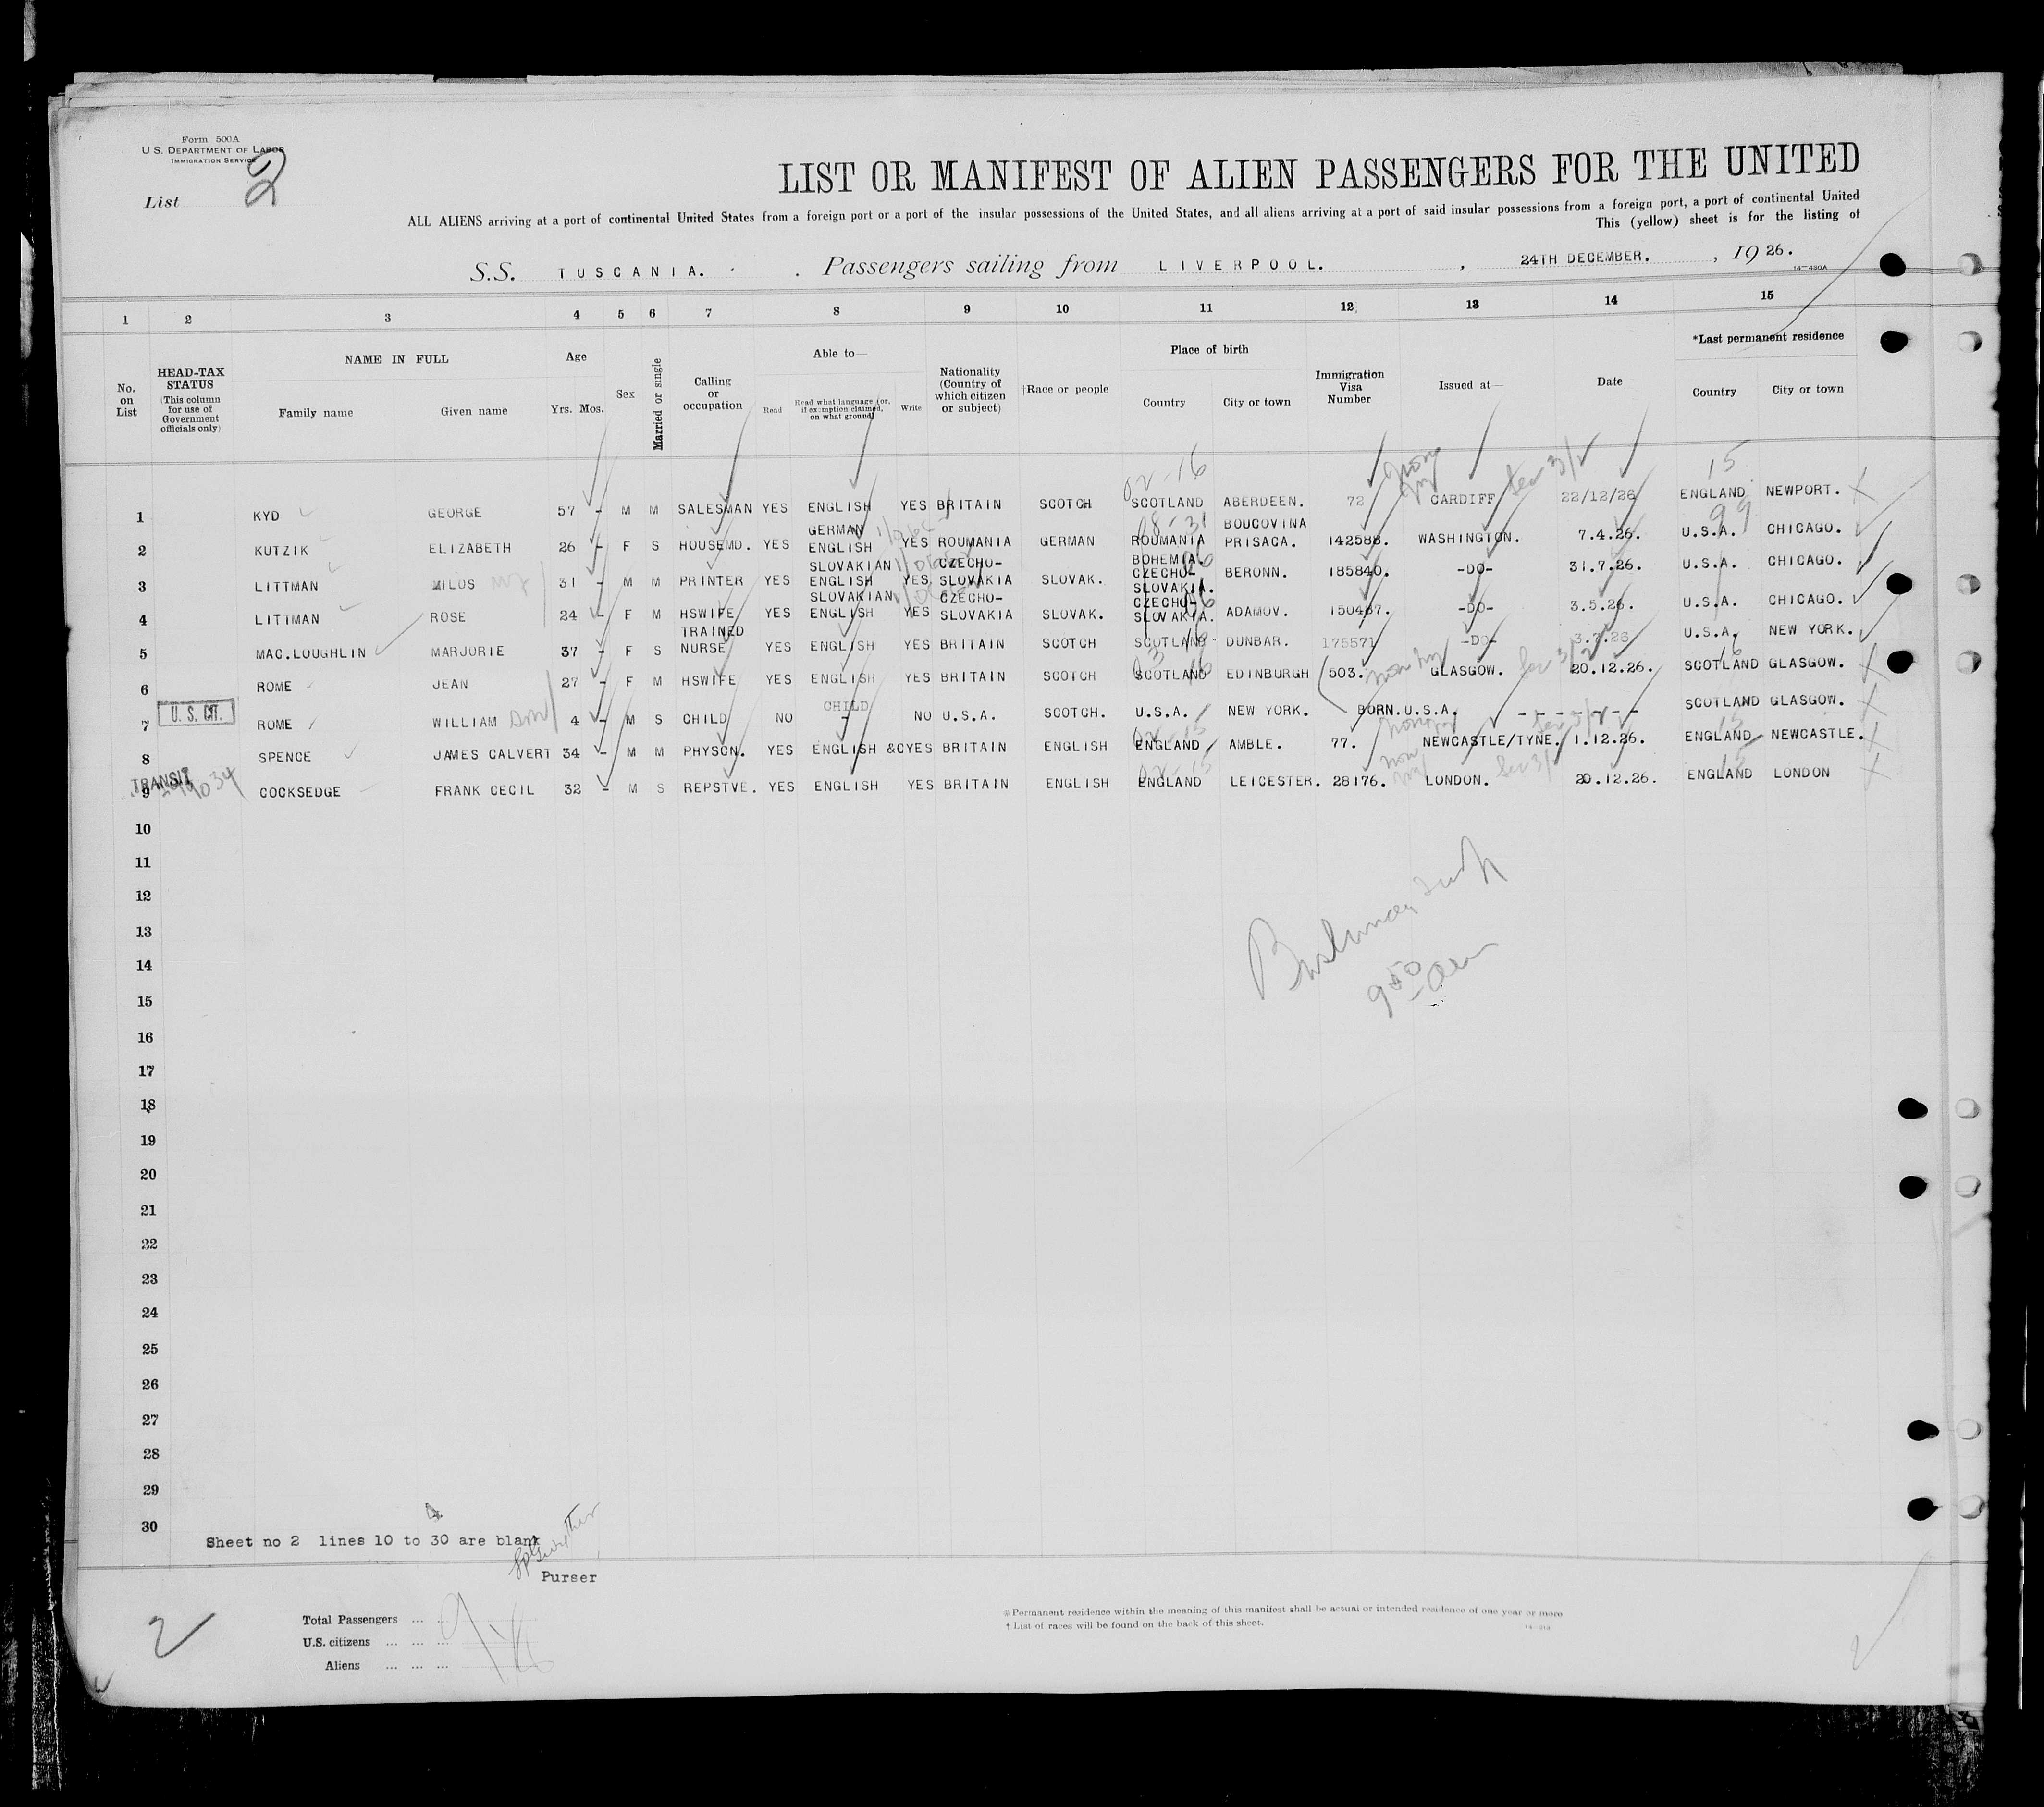 Form 500A
U. S. DEPARTMENT OF LABOR
IMMIGRATION SERVICE
List 2
LIST OR MANIFEST OF ALIEN PASSENGERS FOR THE UNITED
ALL ALIENS arriving at a port of continental United States from a foreign port or a port of the insular possessions of the United States, and all aliens arriving at a port of said insular possessions from a foreign port, a port of continental United
This (yellow) sheet is for the listing of
S.S. TUSCANIA. Passengers sailing from LIVERPOOL. , 24TH DECEMBER. , 19 26.
14—480A
1 2 3 4 5 6 7 8 9 10 11 12 13 14 15
HEAD-TAX STATUS (This column for use of Government officials only)
No. on List
NAME IN FULL
Family name Given name
Age
Yrs. Mos.
Sex
Married or single
Calling or occupation
Able to—
Read Read what language (or, if exemption claimed, on what ground) Write
Nationality (Country of which citizen or subject)
†Race or people
Place of birth
Country City or town
Immigration Visa Number
Issued at—
Date
*Last permanent residence
Country City or town
02-16 15
1 KYD GEORGE 57 - M M SALESMAN YES ENGLISH YES BRITAIN SCOTCH SCOTLAND ABERDEEN. 72 CARDIFF 22/12/26 ENGLAND NEWPORT.
GERMAN 08-31 BOUCOVINA 99
2 KUTZIK ELIZABETH 26 - F S HOUSEMD. YES ENGLISH YES ROUMANIA GERMAN ROUMANIA PRISACA. 142588. WASHINGTON. 7.4.26. U.S.A. CHICAGO.
SLOVAKIAN CZECHO- BOHEMIA
3 LITTMAN MILOS 31 - M M PRINTER YES ENGLISH YES SLOVAKIA SLOVAK. CZECHO- SLOVAKIA. BERONN. 185840. -DO- 31.7.26. U.S.A. CHICAGO.
SLOVAKIAN CZECHO- CZECHO-
4 LITTMAN ROSE 24 - F M HSWIFE YES ENGLISH YES SLOVAKIA SLOVAK. SLOVAKIA. ADAMOV. 150467. -DO- 3.5.26. U.S.A. CHICAGO.
TRAINED
5 MAC.LOUGHLIN MARJORIE 37 - F S NURSE YES ENGLISH YES BRITAIN SCOTCH SCOTLAND DUNBAR. 175571 -DO- 3.7.26 U.S.A. NEW YORK.
6 ROME JEAN 27 - F M HSWIFE YES ENGLISH YES BRITAIN SCOTCH SCOTLAND EDINBURGH 503. GLASGOW. 20.12.26. SCOTLAND GLASGOW.
U. S. CIT. CHILD
7 ROME WILLIAM son 4 - M S CHILD NO - NO U.S.A. SCOTCH. U.S.A. NEW YORK. BORN.U.S.A. - - - - - - - SCOTLAND GLASGOW.
8 SPENCE JAMES CALVERT 34 - M M PHYSCN. YES ENGLISH &C YES BRITAIN ENGLISH ENGLAND AMBLE. 77. NEWCASTLE/TYNE. 1.12.26. ENGLAND NEWCASTLE.
TRANSIT
9 COCKSEDGE FRANK CECIL 32 - M S REPSTVE. YES ENGLISH YES BRITAIN ENGLISH ENGLAND LEICESTER. 28176. LONDON. 20.12.26. ENGLAND LONDON
10
11
12
13
14
15
16
17
18
19
20
21
22
23
24
25
26
27
28
29
30
Sheet no 2 lines 10 to 30 are blank
Purser
2
Total Passengers ... ... 9
U.S. citizens ... ... ... 1
Aliens ... ... ...
* Permanent residence within the meaning of this manifest shall be actual or intended residence of one year or more
† List of races will be found on the back of this sheet.